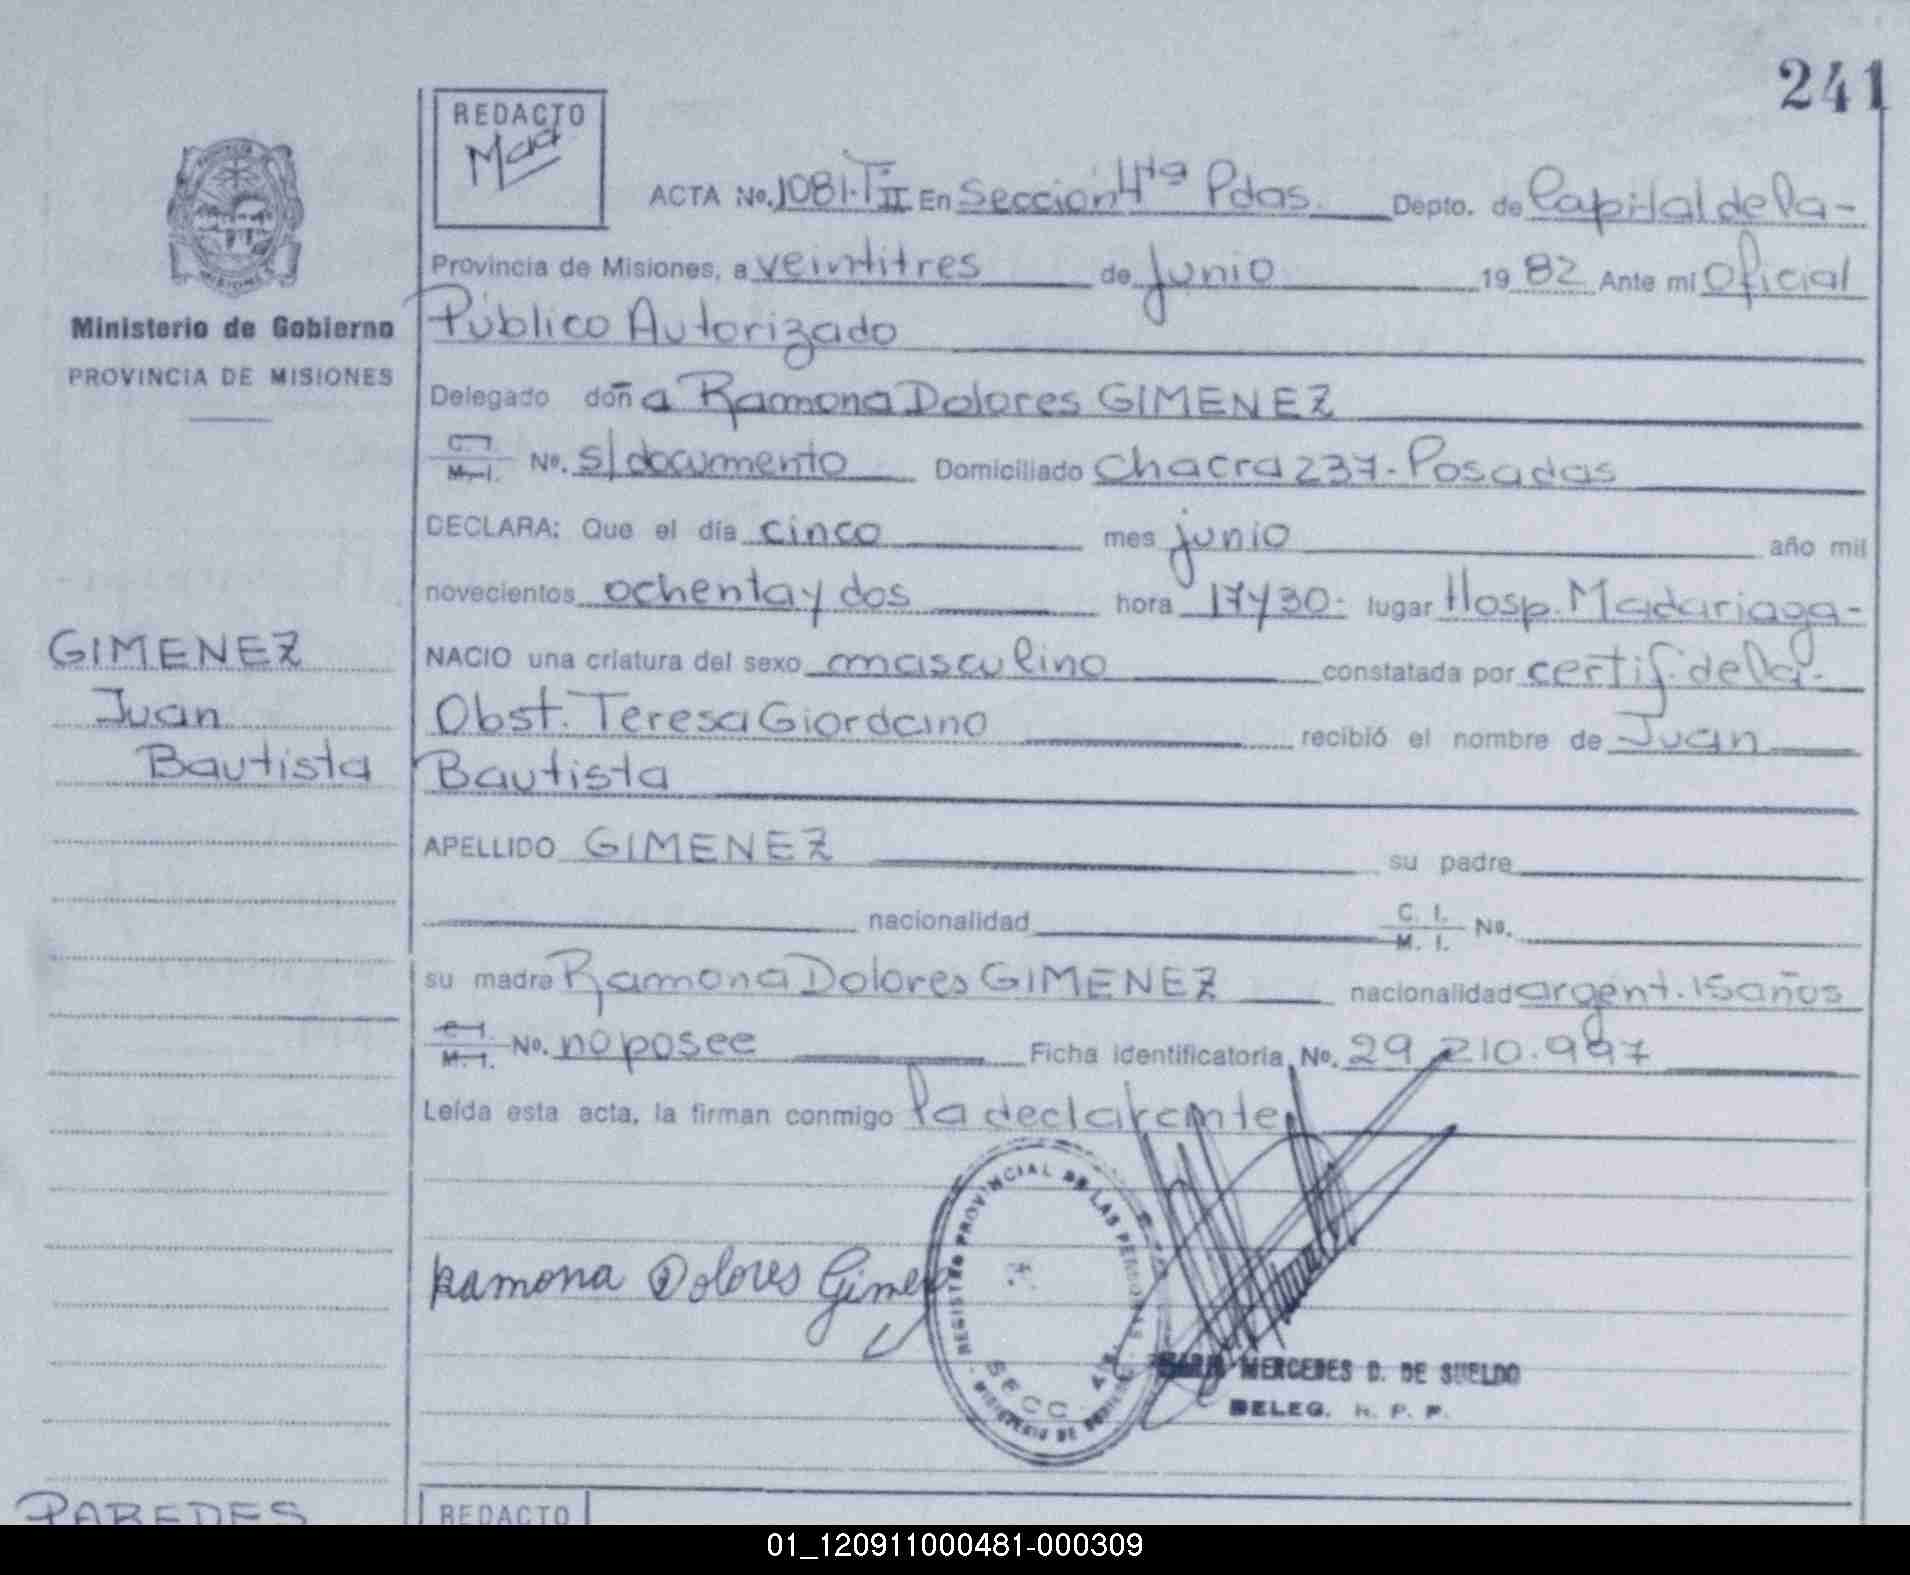 241
REDACTO
Mad
ACTA No. 1081.TºII En Sección 4ta Pdas. Depto. de Capital de la-
Provincia de Misiones, a veintitres de junio 1982 Ante mi Oficial
Público Autorizado
Ministerio de Gobierno
PROVINCIA DE MISIONES
Delegado doña Ramona Dolores GIMENEZ
C.I. M.I. No. s/documento Domiciliado Chacra 237-Posadas
DECLARA: Que el día cinco mes junio año mil
novecientos ochenta y dos hora 17y30- lugar Hosp. Madariaga-
GIMENEZ
Juan
Bautista
NACIO una criatura del sexo masculino constatada por certif. de la-
Obst. Teresa Giordano recibió el nombre de Juan
Bautista
APELLIDO GIMENEZ su padre
nacionalidad C. I. M. I. No.
su madre Ramona Dolores GIMENEZ nacionalidad argent. 15años
C.I. M.I. No. no posee Ficha identificatoria No. 29.210.997
Leída esta acta, la firman conmigo la declarante
Ramona Dolores Gimene
REGISTRO PROVINCIAL DE LAS PERSONAS
SECC. 4ta.
MINISTERIO DE GOBIERNO
SARA MERCEDES D. DE SUELDO
DELEG. R. P. P.
PAREDES
REDACTO
01_120911000481-000309